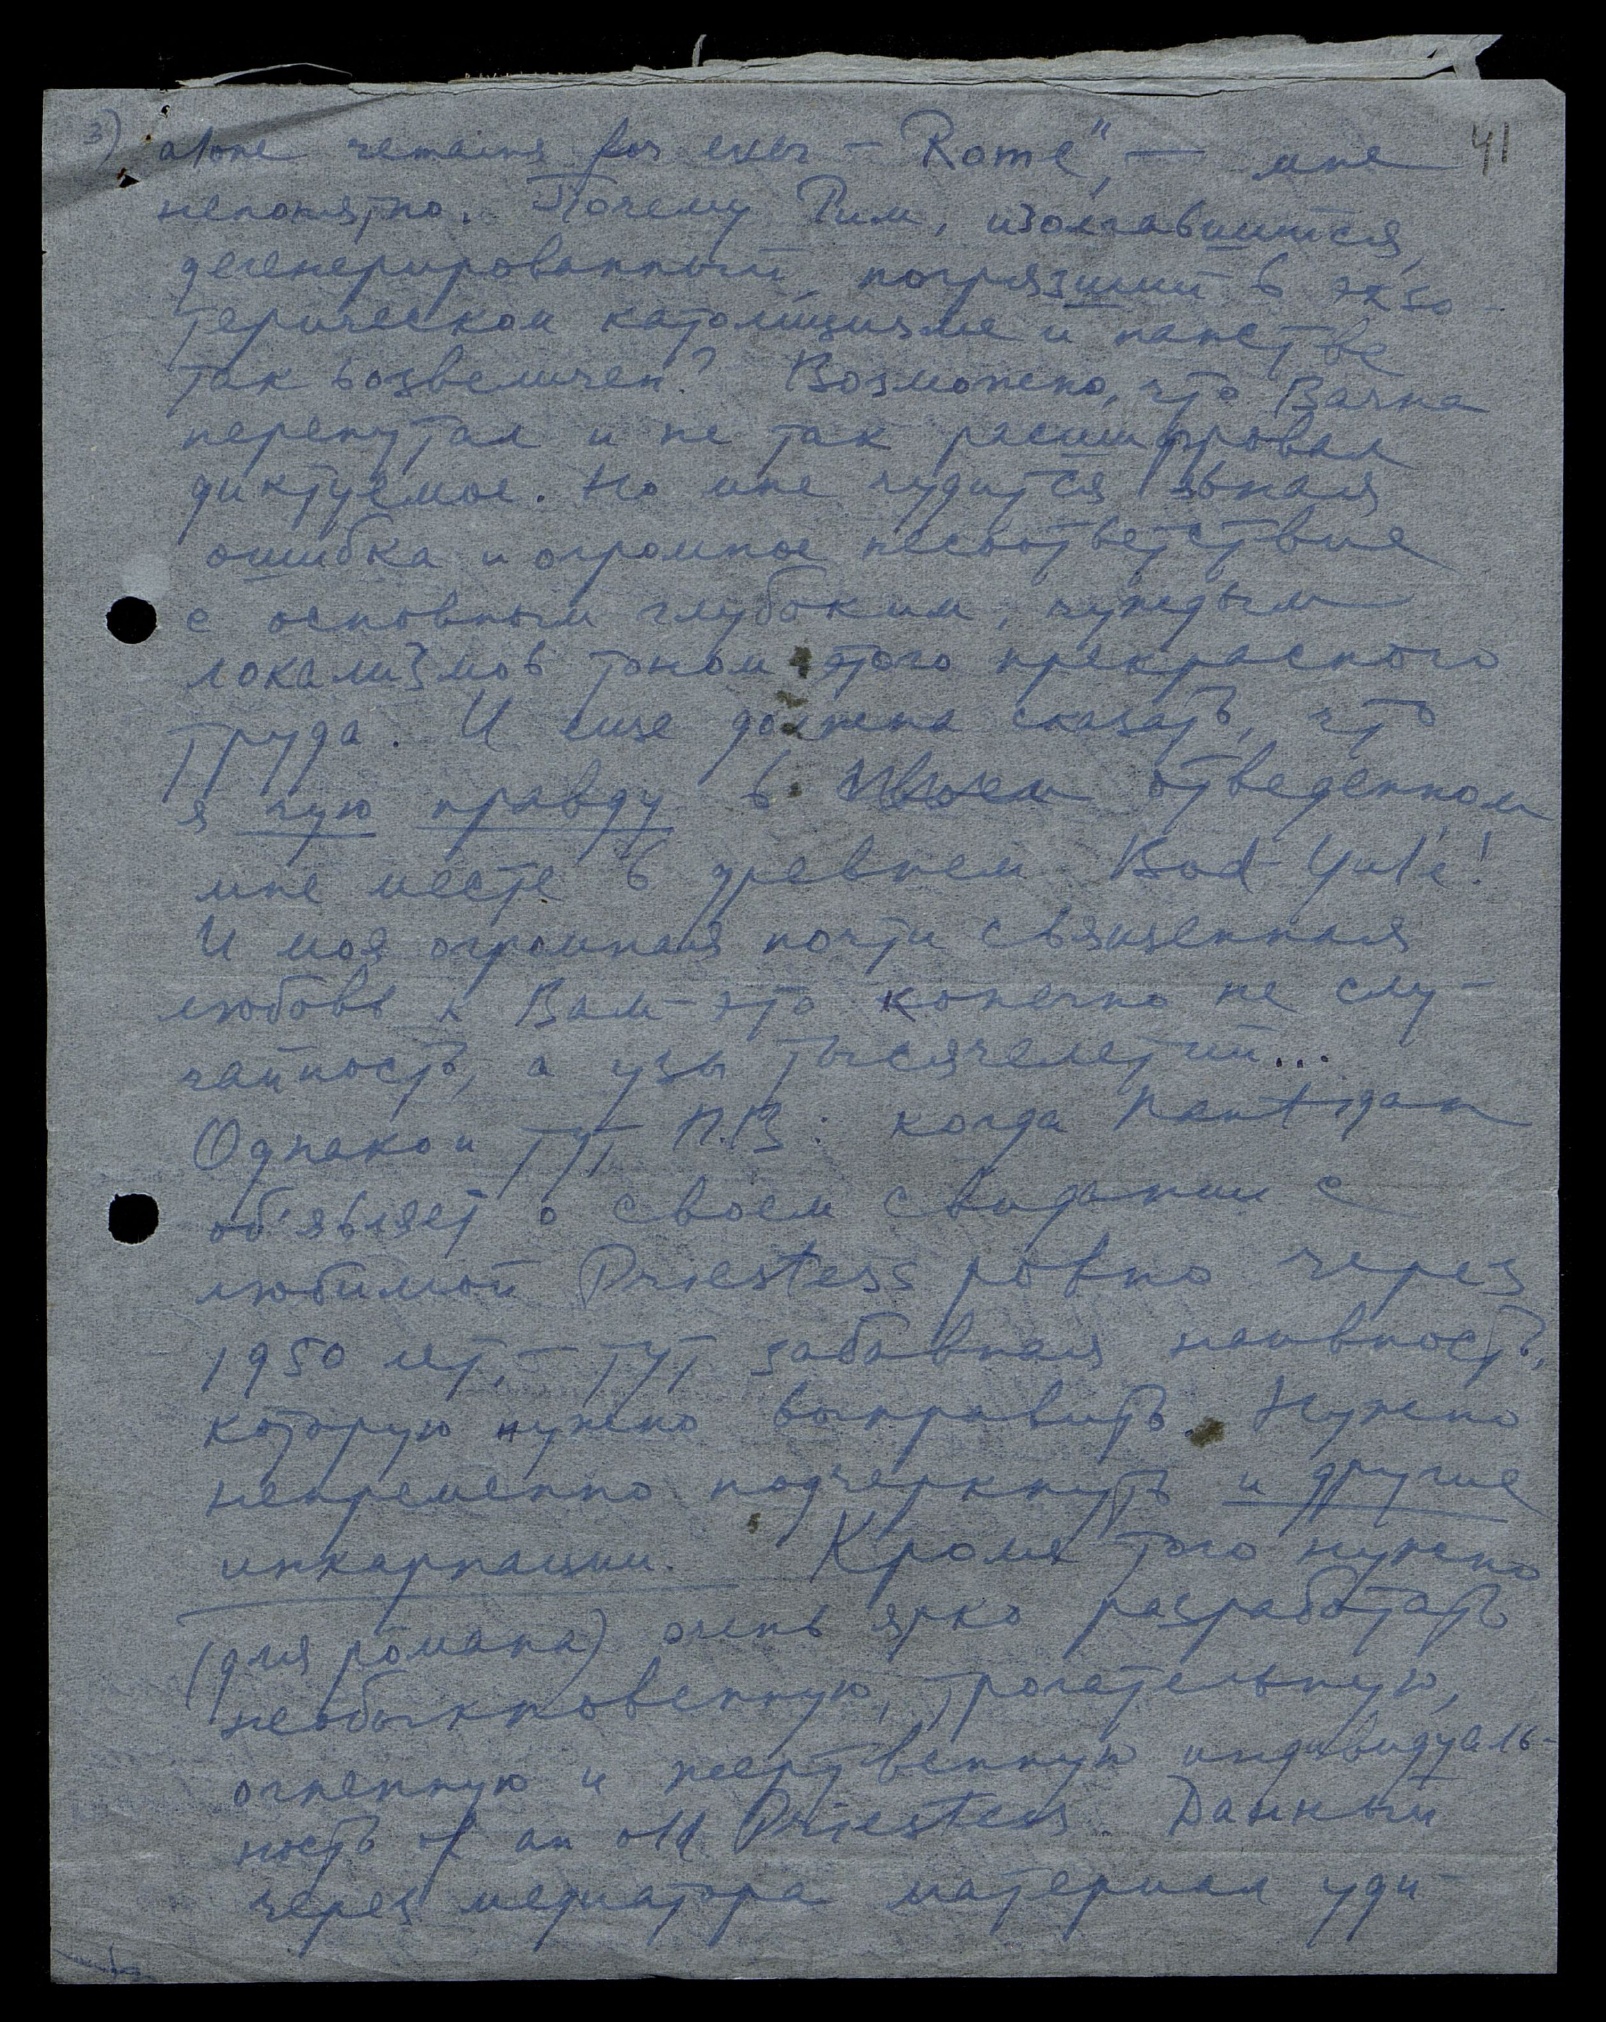 3) alone remains for ever – Rome", – мне 41
непонятно. Почему Рим, изолгавшийся,
дегенерированный, погрязший в экзо-
терическом католицизме и папстве
так возвеличен? Возможно, что
перепутал и не так расшифровал
диктуемое. Но мне чудится явная
ошибка и огромное несоответствие
с основным глубоким, чуждым
локализмов тоном этого прекрасного
труда. И еще должна сказать, что
я чую правду в отведенном
мне месте в древнем Bod-Yul'е!
И моя огромная почти священная
любовь к Вам – это конечно не слу-
чайность, а узы тысячелетий...
Однако и тут П.В: когда
об'являет о своем свидании с
любимой Priestess ровно через
1950 лет, – тут забавная наивность,
которую нужно выправить. Нужно
непременно подчеркнуть и другие
инкарнации. Кроме того нужно
(для романа) очень ярко разработать
необыкновенную, трогательную,
огненную и жертвенную индивидуаль-
ность of an old Priestess. Данный
через медиатора материал уди-